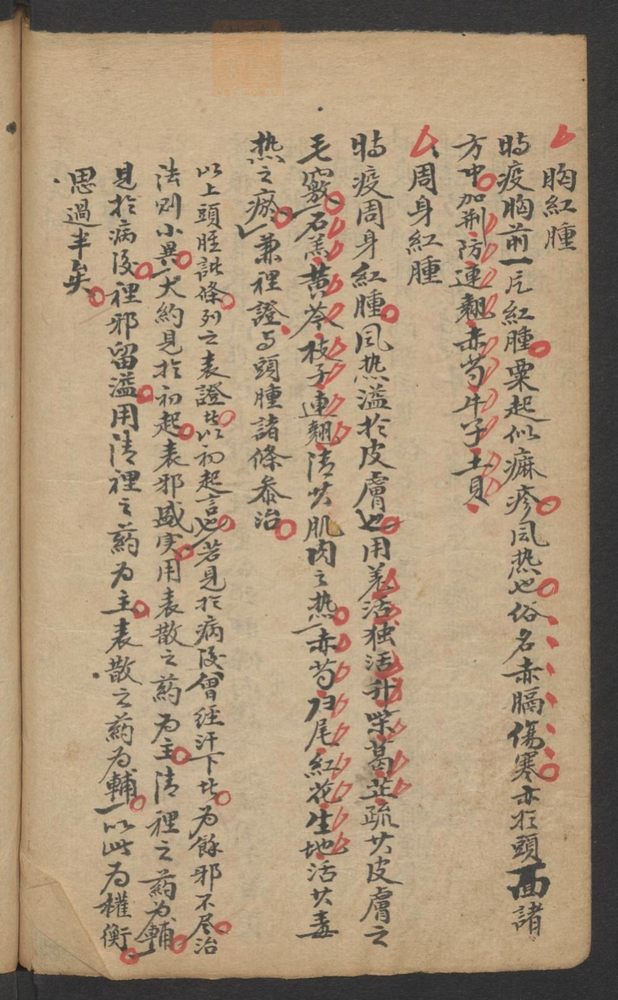 胸紅腫
時疫胸前一片紅腫粟起似痲疹風热也俗名赤膈傷寒亦於頭面諸
方中加荆防連翹赤芍牛子土貝
周身紅腫
時疫周身紅腫風热溢於皮膚也用羌活独活升柴葛芷疏其皮膚之
毛竅石羔黄芩枝子連翹清其肌肉之热赤芍归尾紅花生地活其毒
热之瘀兼裡證与頭腫諸條叅治
以上頭腫諸條列之表證此以初起言也若見於病後曾经汗下此为餘邪不尽治
法则小異大約見於初起表邪盛実用表散之药为主清裡之药为輔
見於病後裡邪留溢用清裡之药为主表散之药为輔以此为權衡
思過半矣